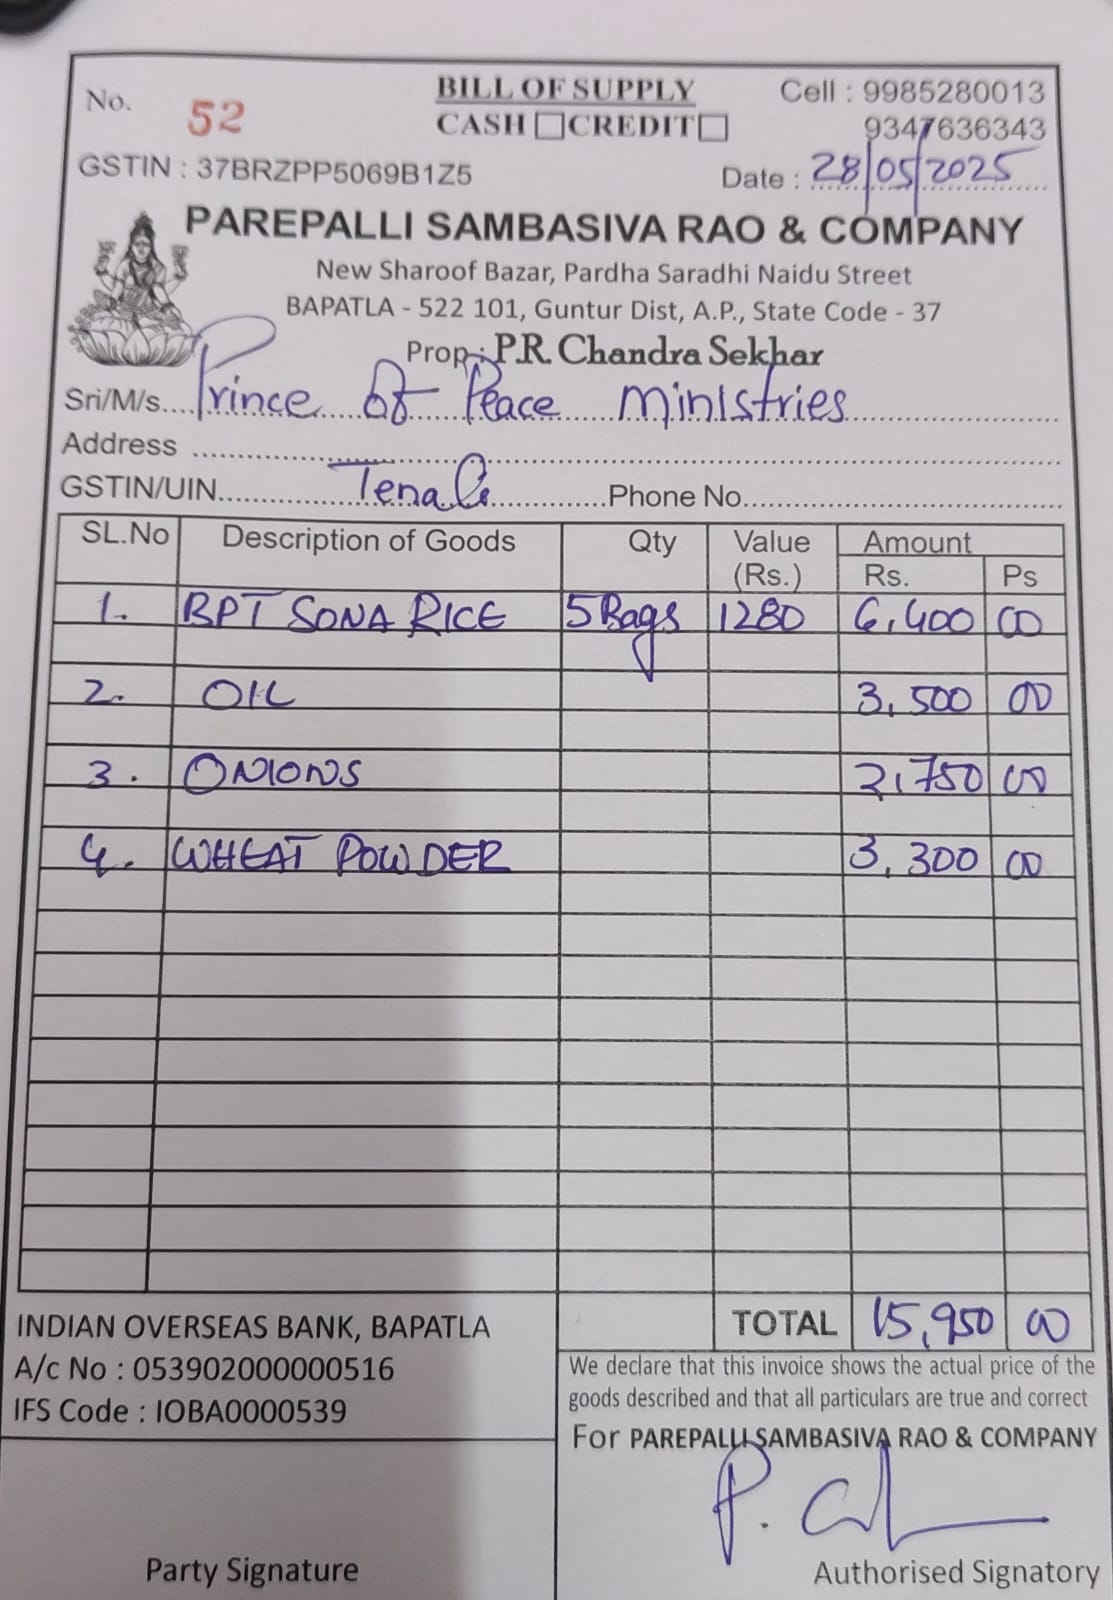 No. 52
BILL OF SUPPLY
CASH CREDIT
Cell : 9985280013
9347636343
GSTIN : 37BRZPP5069B1Z5
Date : 28/05/2025
PAREPALLI SAMBASIVA RAO & COMPANY
New Sharoof Bazar, Pardha Saradhi Naidu Street
BAPATLA - 522 101, Guntur Dist, A.P., State Code - 37
Prop : P.R. Chandra Sekhar
Sri/M/s.... Prince Of Peace Ministries
Address
GSTIN/UIN..... Tenali ..... Phone No.
SL.No Description of Goods Qty Value (Rs.) Amount Rs. Ps
1. BPT SONA RICE 5 Bags 1280 6,400 00
2. OIL 3,500 00
3. ONIONS 2,750 00
4. WHEAT POWDER 3,300 00
TOTAL 15,950 00
INDIAN OVERSEAS BANK, BAPATLA
A/c No : 053902000000516
IFS Code : IOBA0000539
We declare that this invoice shows the actual price of the
goods described and that all particulars are true and correct
For PAREPALLI SAMBASIVA RAO & COMPANY
Party Signature
Authorised Signatory